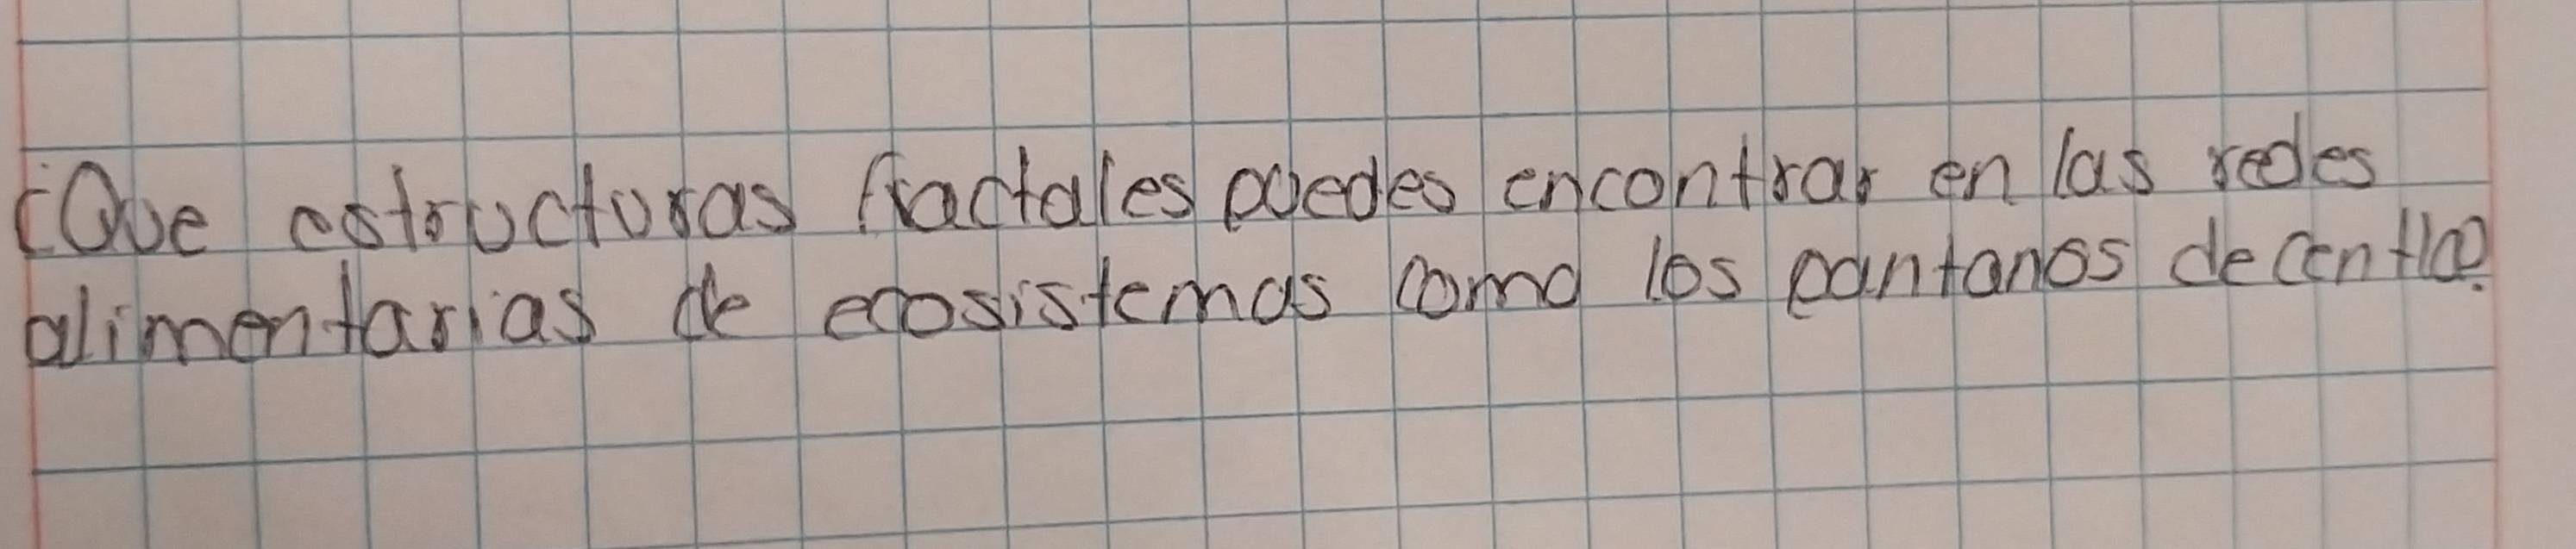 ¿Que estructuras fractales puedes encontrar en las redes
alimentarias de ecosistemas como los pantanos de centla?